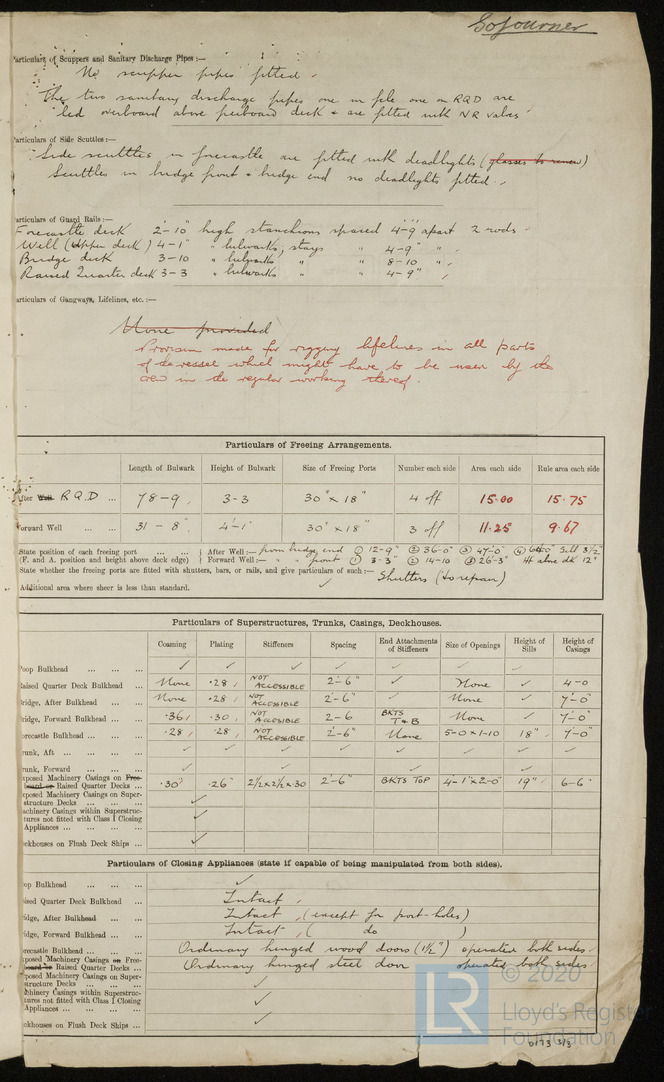 Sojourner
Particulars of Scuppers and Sanitary Discharge Pipes:—
No scupper pipes fitted.
The two sanitary discharge pipes one in fcle one on RQD are
led overboard above freeboard deck & are fitted with NR valves
Particulars of Side Scuttles:—
Side scuttles in forecastle are fitted with deadlights (glasses to renew)
Scuttles in bridge front & bridge end no deadlights fitted.
Particulars of Guard Rails:—
Forecastle deck 2'-10" high stanchions spaced 4'-9" apart 2 rods
Well (Upper deck) 4-1" " bulwarks, stays " 4-9" "
Bridge deck 3-10 " bulwarks " " 8-10 "
Raised Quarter deck 3-3 " bulwarks " " 4-9"
Particulars of Gangways, Lifelines, etc.:—
None provided
Provision made for rigging lifelines in all parts
of the vessel which might have to be used by the
crew in the regular working thereof.
Particulars of Freeing Arrangements.
Length of Bulwark Height of Bulwark Size of Freeing Ports Number each side Area each side Rule area each side
After Well RQD ... 78-9 3-3 30" x 18" 4 off 15.00 15.75
Forward Well ... ... 31-8" 4'-1" 30" x 18" 3 off 11.25 9.67
State position of each freeing port ... ... After Well:— from bridge end ① 12-9" ② 36-0" ③ 47-0" ④ Sill 3½"
(F. and A. position and height above deck edge) Forward Well:— " " front ① 3-3" ② 14-10 ③ 26-3" Ht above dk 12"
State whether the freeing ports are fitted with shutters, bars, or rails, and give particulars of such:— Shutters (to repair)
Additional area where sheer is less than standard.
Particulars of Superstructures, Trunks, Casings, Deckhouses.
Coaming Plating Stiffeners Spacing End Attachments of Stiffeners Size of Openings Height of Sills Height of Casings
Poop Bulkhead ... ... ... ✓ ✓ ✓ ✓ ✓ ✓ ✓
Raised Quarter Deck Bulkhead ... None .28 NOT ACCESSIBLE 2'-6" ✓ None ✓ 4-0
Bridge, After Bulkhead ... ... None .28 NOT ACCESSIBLE 2'-6" ✓ None ✓ 7'-0"
Bridge, Forward Bulkhead ... ... .36 .30 NOT ACCESSIBLE 2-6 BKTS T&B None ✓ 7'-0"
Forecastle Bulkhead ... ... ... .28 .28 NOT ACCESSIBLE 2'-6" None 5-0x1-10 18" 7'-0"
Trunk, Aft ... ... ... ✓ ✓ ✓ ✓ ✓ ✓ ✓ ✓
Trunk, Forward ... ... ... ✓ ✓ ✓
Exposed Machinery Casings on Free-
board or Raised Quarter Decks ... .30 .26" 2½x2½x.30 2'-6" BKTS TOP 4'-1"x2'-0" 19" 6-6"
Exposed Machinery Casings on Super-
structure Decks ... ... ... ✓
Machinery Casings within Superstruc-
tures not fitted with Class I Closing
Appliances ... ... ... ✓
Deckhouses on Flush Deck Ships ... ✓
Particulars of Closing Appliances (state if capable of being manipulated from both sides).
Poop Bulkhead ... ... ... ✓
Raised Quarter Deck Bulkhead ... Intact
Bridge, After Bulkhead ... ... Intact (except for port-holes)
Bridge, Forward Bulkhead ... ... Intact ( do )
Forecastle Bulkhead ... ... ... Ordinary hinged wood doors (1½") operated both sides
Exposed Machinery Casings on Free-
board or Raised Quarter Decks ... Ordinary hinged steel door operated both sides
Exposed Machinery Casings on Super-
structure Decks ... ... ... ✓
Machinery Casings within Superstruc-
tures not fitted with Class I Closing
Appliances ... ... ... ✓
Deckhouses on Flush Deck Ships ... ✓
LR
© 2020
Lloyd's Register
Foundation
0173 3/3